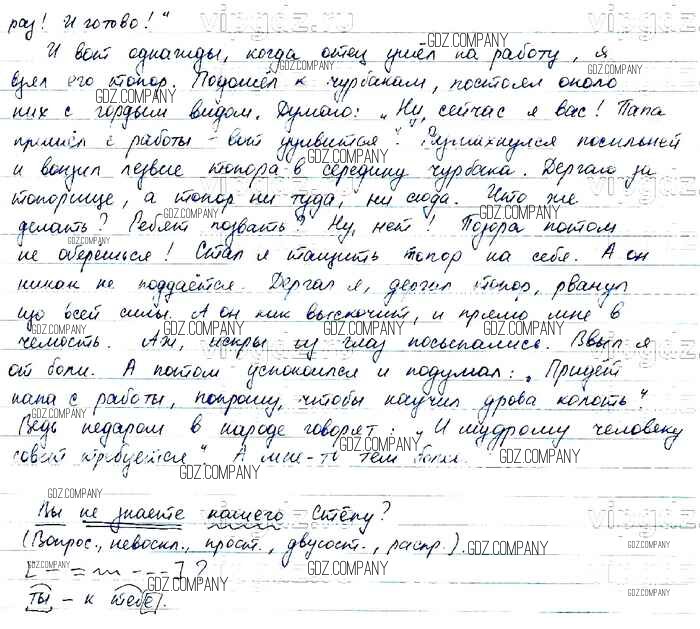 раз! И готово!"
И вот однажды, когда отец ушёл на работу, я
взял его топор. Подошёл к чурбакам, постоял около
них с гордым видом. Думаю: „Ну, сейчас я вас! Папа
пришёл с работы – вот удивится?" Размахнулся посильней
и вонзил лезвие топора в середину чурбака. Дергаю за
топорище, а топор ни туда, ни сюда. Что же
делать? Ребят позвать? Ну, нет! Позора потом
не оберешься! Стал я тащить топор на себя. А он
никак не поддаётся. Дергал я, дергал топор, рванул
изо всей силы. А он как выскочит, и прямо мне в
челюсть. Аж, искры из глаз посыпались. Взвыл я
от боли. А потом успокоился и подумал: „Придёт
папа с работы, попрошу, чтобы научил дрова колоть".
Ведь недаром в народе говорят: „И мудрому человеку
совет требуется". А мне-то тем более.
Вы не знаете нашего Стёпу?
(Вопрос., невоскл., прост., двусост., распр.).
[– = ~ ---]?
ты – к тебе.
GDZ.COMPANY
virgdz.ru